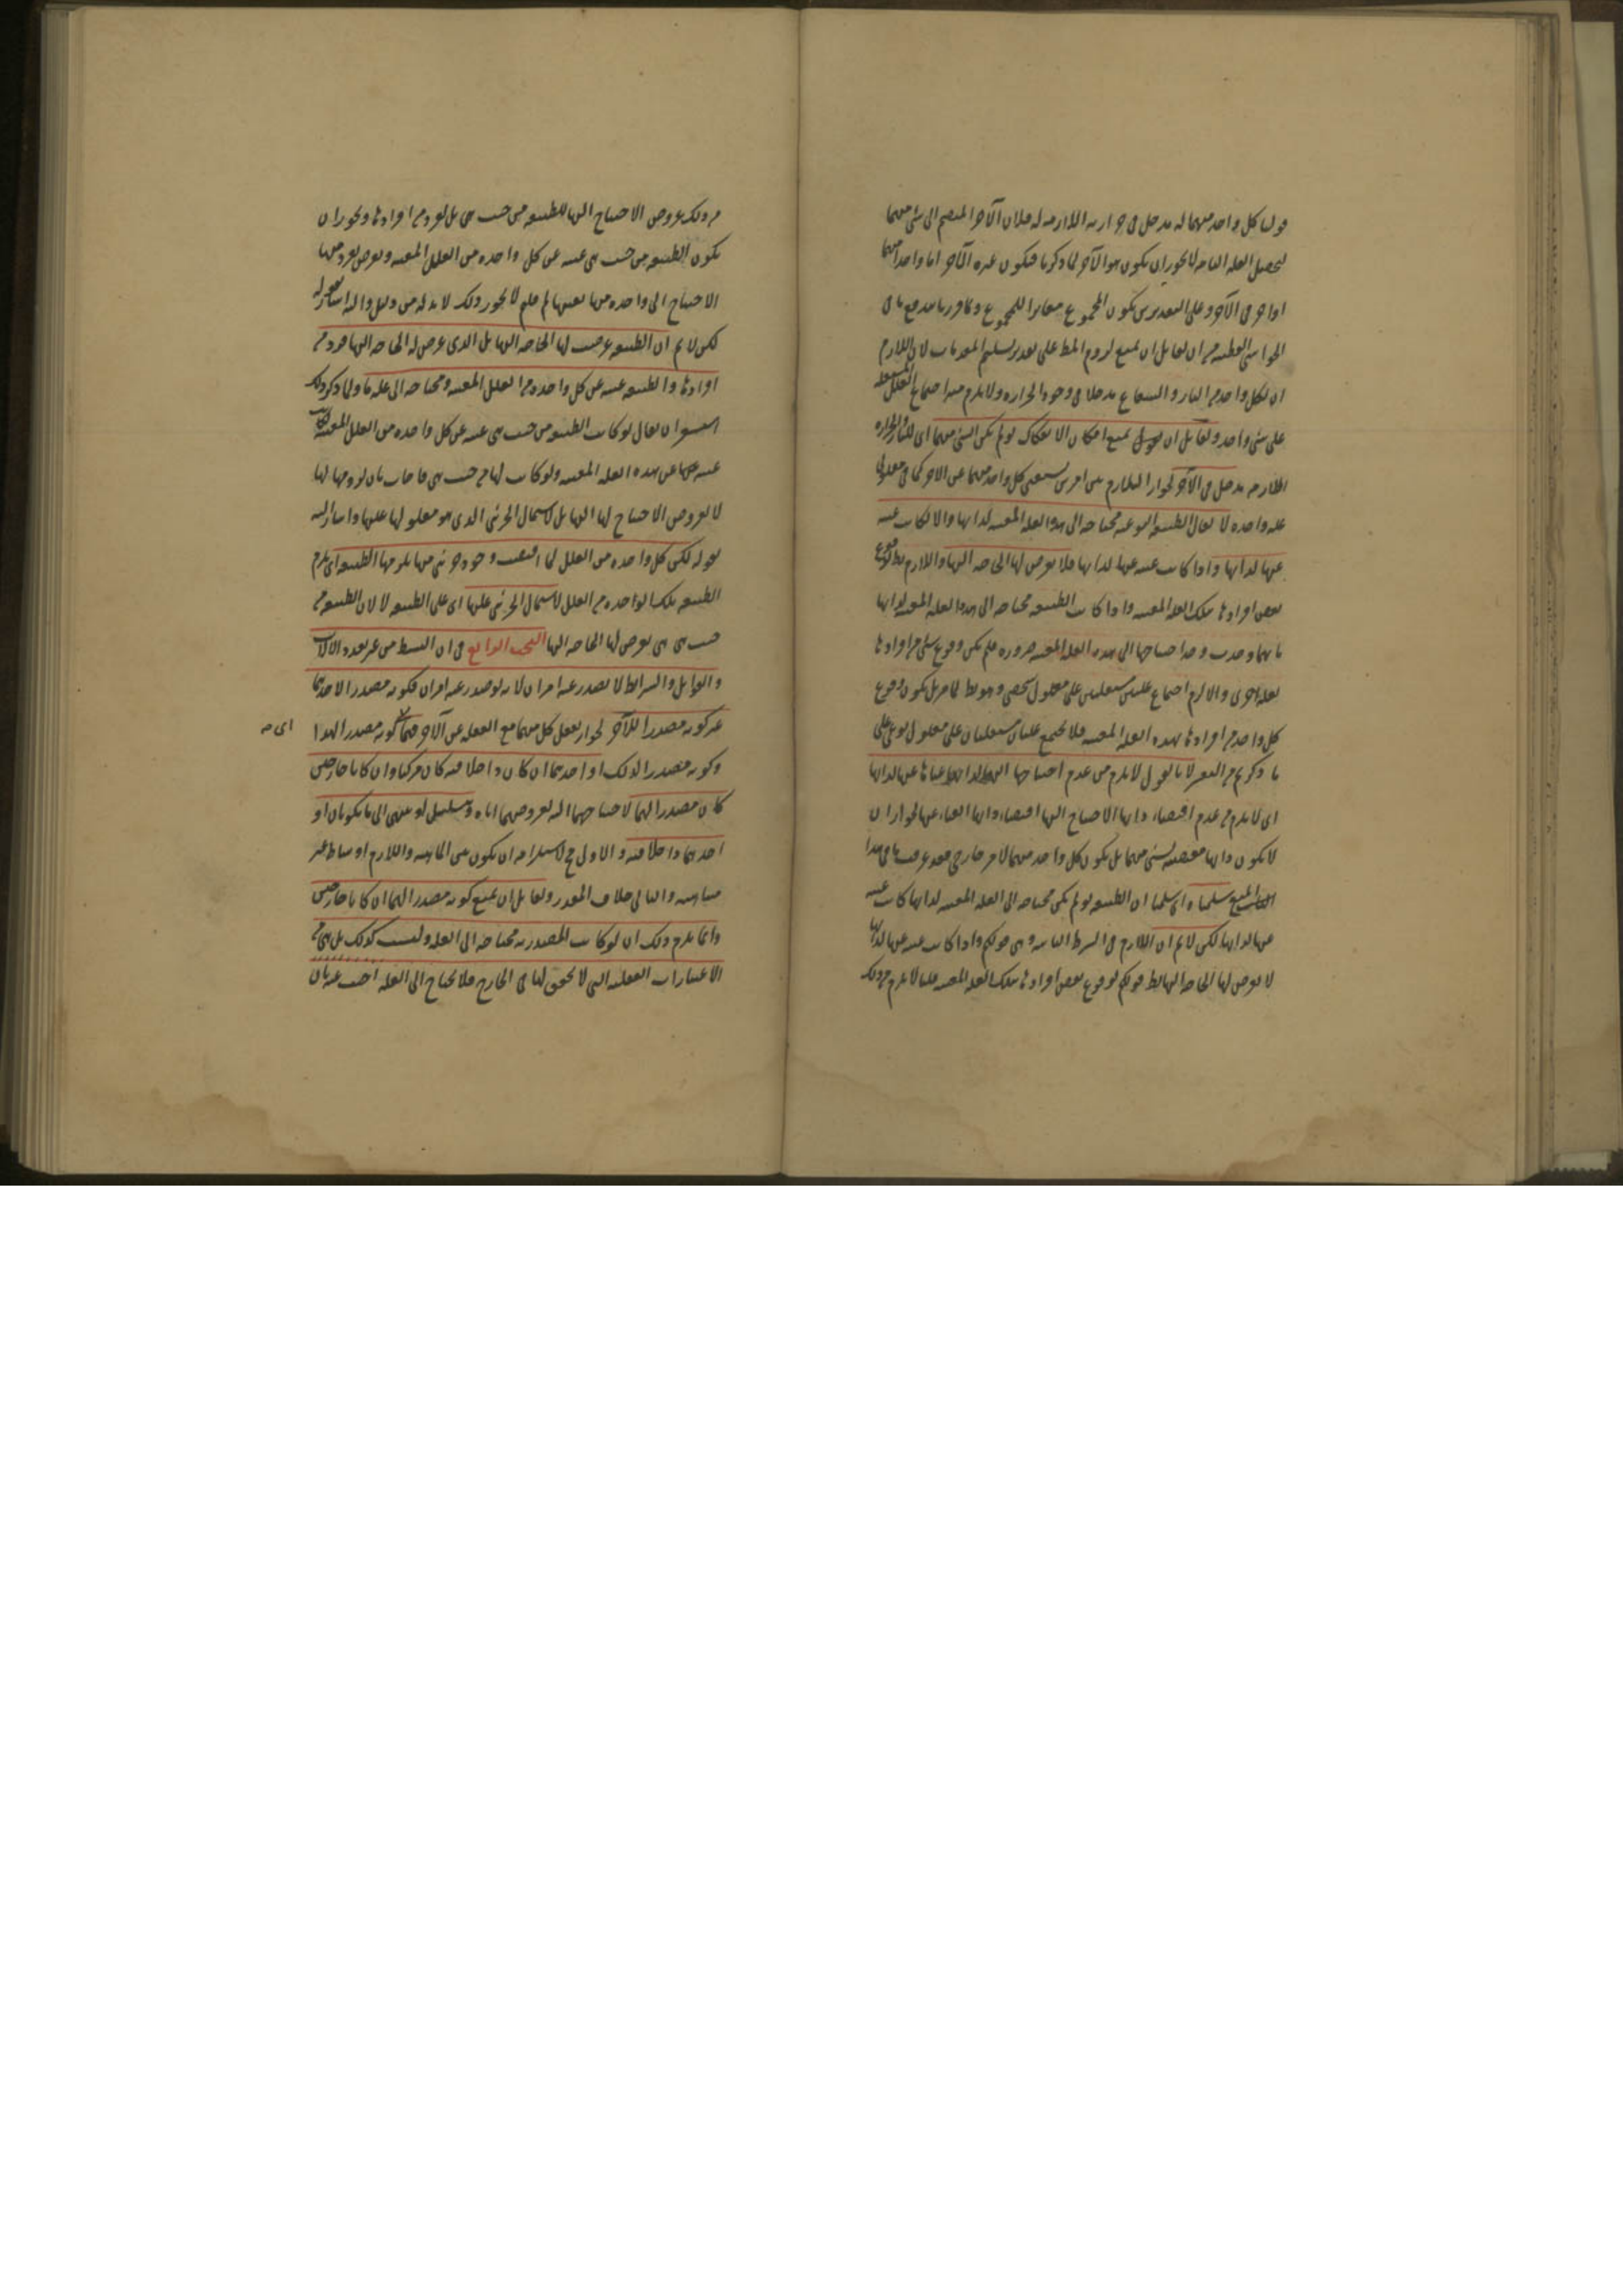 قولنا كل واحد منهما له مدخل في حرارته اللازمة له فلان الآخر المنضم الى شئ منهما
لتحصل العلة التامة لا يجوز ان يكون هو الآخر لما ذكرنا فيكون غيره الآخر اما واحد منهما
او آخر في الآخر وعلى التقديرين يكون المجموع مغايرا للمجموع وما قررنا يندفع ما في
الحواشي القطبية من ان لقائل ان يمنع لزوم المط على تقدير تسليم المقدمات لان اللازم
ان لكل واحد من النار والشعاع مدخلا في وجود الحرارة ولا يلزم منه اجتماع العلل المستقلة
على شئ واحد ولقائل ان يقول نمنع امكان الانفكاك لو لم يكن لشئ منهما اى للنار والحرارة
اللازمة مدخل في الآخر لجواز التلازم بين امرين يستغنى كل واحد منهما عن الآخر كما في معلولي
علة واحدة لا يقال الطبيعة النوعية محتاجة الى هذا العلة المعينة لذاتها والا لكانت غنية
عنها لذاتها واذا كانت غنية عنها لذاتها فلا يعرض لها الحاجة اليها واللازم بط لوقوع
بعض افرادها بتلك العلة المعينة واذا كانت الطبيعة محتاجة الى هذا العلة المعينة لذاتها
فاينما وجدت وجد احتياجها الى هذه العلة المعينة ضرورة فلم يكن وقوع شئ من افرادها
بعلة اخرى والا لزم اجتماع علتين مستقلتين على معلول شخصي وهو بط لما مر بل يكون وقوع
كل واحد من افرادها بهذه العلة المعينة فلا يجتمع علتان مستقلتان على معلول نوعي على
ما ذكرتم من التفسير لانا نقول لا يلزم من عدم احتياجها اليها لذاتها غناها عنها لذاتها
اى لا يلزم من عدم اقتضاء ذاتها الاحتياج اليها اقتضاء ذاتها الغناء عنها لجواز ان
لا يكون ذاتها مقتضية لشئ منهما بل يكون كل واحد منهما لامر خارجي وقد عرفت ما في هذا
المنع سلمناه اى سلمنا ان الطبيعة لو لم يكن محتاجة الى العلة المعينة لذاتها كانت غنية
عنها لذاتها لكن لا نم ان اللازم في الشرطية الثانية وهى قولكم واذا كانت غنية عنها لذاتها
لا يعرض لها الحاجة اليها بط قولكم لوقوع بعض افرادها بتلك العلة المعينة قلنا لا يلزم من ذلك
من ذلك عروض الاحتياج اليها للطبيعة من حيث هى بل لفرد من افرادها ويجوز ان
يكون الطبيعة من حيث هى غنية عن كل واحدة من العلل المعينة ويعرض لفرد منها
الاحتياج الى واحدة منها بعينها لم قلتم لا يجوز ذلك لا بد له من دليل واليه اشار بقوله
لكن لا نم ان الطبيعة عرضت لها الحاجة اليها بل الذى عرض له الحاجة اليها فرد من
افرادها والطبيعة غنية عن كل واحدة من العلل المعينة ومحتاجة الى علة ما ولما ذكر ذلك
استشعر ان يقال لو كانت الطبيعة من حيث هى غنية عن كل واحدة من العلل المعينة لكانت
غنية عنها عن هذه العلة المعينة ولو كانت لها من حيث هى فاجاب بان لزومها لها
لا لعروض الاحتياج لها اليها بل لاشتمال الجزئى الذى هو معلول لها عليها واشار اليه
بقوله لكن كل واحدة من العلل لما اقتضت وجود جزئى منها يلزمها الطبيعة اى يلزم
الطبيعة تلك الواحدة من العلل لاشتمال الجزئى عليها اى على الطبيعة لا لان الطبيعة من
حيث هى هى يعرض لها الحاجة اليها البحث الرابع في ان البسيط من غير تعدد الآلات
والقوابل والشرائط لا يصدر عنه امران لانه لو صدر عنه امران فكونه مصدرا لاحدهما
غير كونه مصدرا للآخر لجواز تعقل كل منهما مع الغفلة عن الآخر فمفهوم كونه مصدرا لهذا
اى مـ
وكونه مصدرا لذلك او احدهما ان كان داخلا فيه كان مركبا وان كانا خارجين
كان مصدرا لهما لاحتياجهما اليه لعروضهما اياه وتسلسل او ينتهى الى ما يكونان او
احدهما داخلا فيه والاول مح لاستلزامه ان يكون بين الماهية واللازم اوساط غير
متناهية والثانى خلاف المقدر ولقائل ان يمنع كونه مصدرا لهما ان كانا خارجين
وانما يلزم ذلك ان لو كانت المصدرية محتاجة الى العلة وليست كذلك بل هى من
الاعتبارات العقلية التى لا تحقق لها في الخارج فلا تحتاج الى العلة اجيب عنه بان